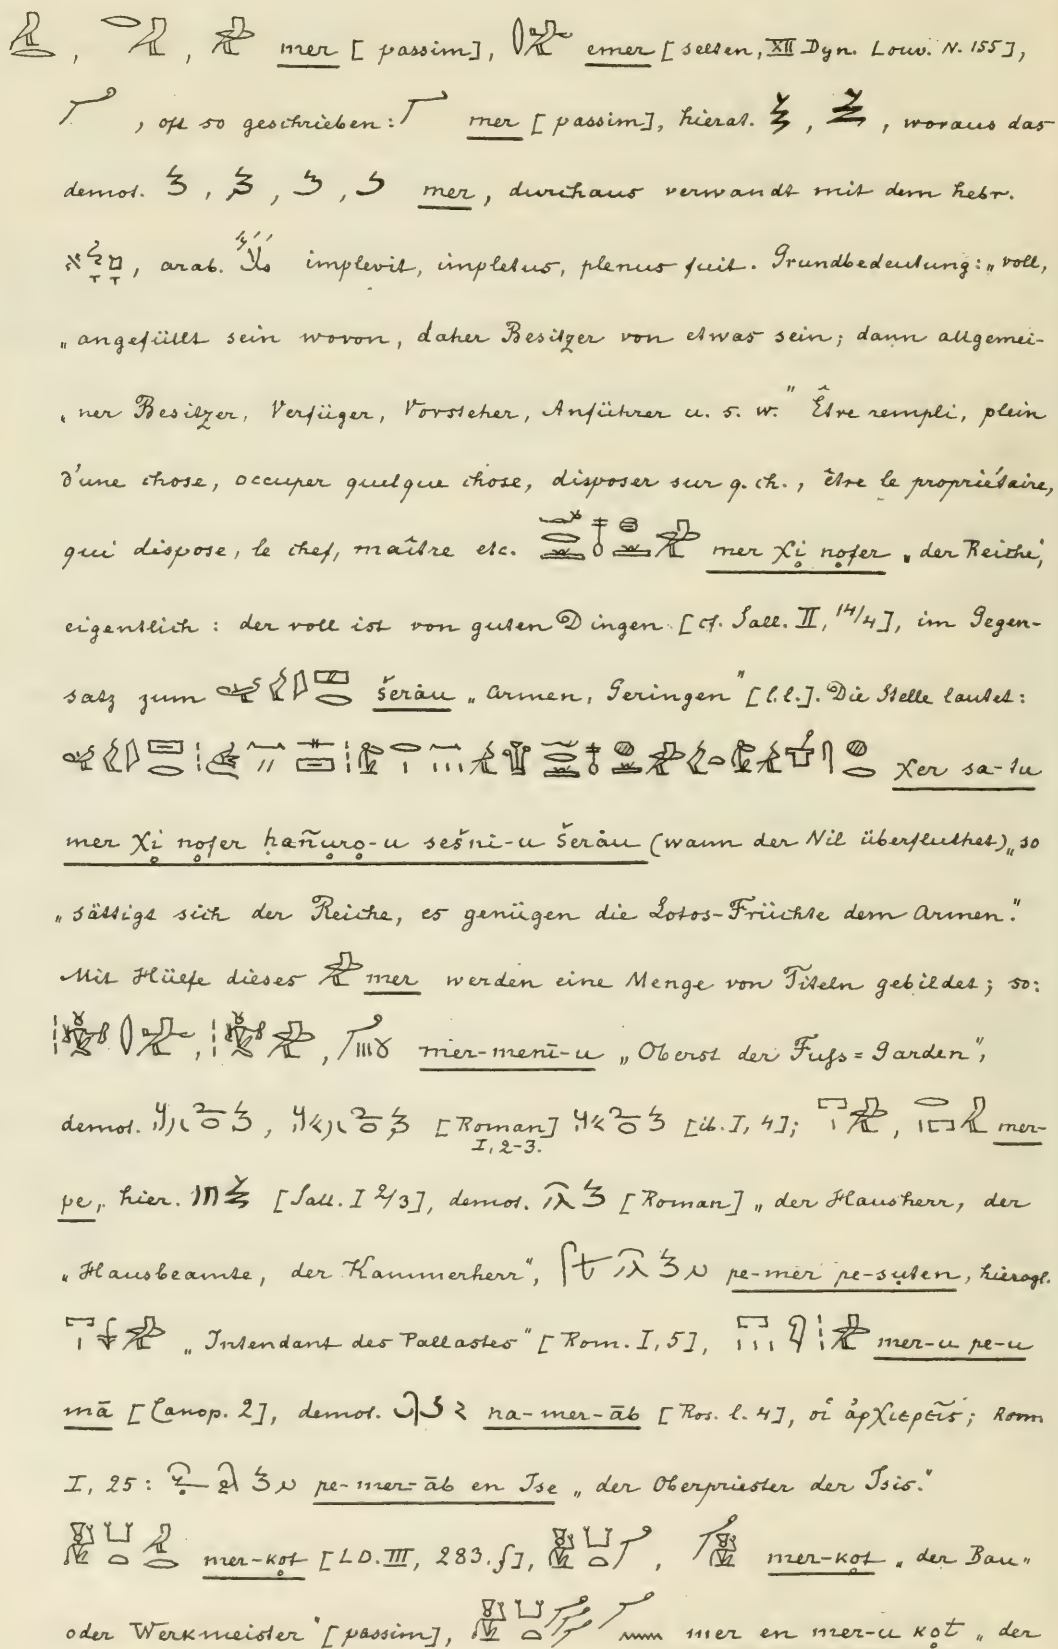 mer [passim], emer [selten, XII Dyn. Louv. N. 155],
, oft so geschrieben: mer [passim], hierat. , , woraus das
demot. , , , mer, durchaus verwandt mit dem hebr.
מָלָא, arab. ملأ implevit, impletus, plenus fuit. Grundbedeutung: „voll,
„angefüllt sein wovon, daher Besitzer von etwas sein; dann allgemei-
„ner Besitzer, Verfüger, Vorsteher, Anführer u. s. w.“ Être rempli, plein
d'une chose, occuper quelque chose, disposer sur q. ch., être le propriétaire,
qui dispose, le chef, maître etc. mer χi nofer „der Reiche‘,
eigentlich: der voll ist von guten Dingen [cf. Sall. II, 14/4], im Gegen-
satz zum šeràu „Armen, Geringen“ [l.l.]. Die Stelle lautet:
χer sa-tu
mer χi nofer hañuro-u sešni-u šeràu (wann der Nil überfluthet) „so
„sättigt sich der Reiche, es genügen die Lotos-Früchte dem Armen.“
Mit Hülfe dieses mer werden eine Menge von Titeln gebildet; so:
, , mer-menī-u „Oberst der Fuſs=Garden“,
demot. , [Roman I, 2-3.] [ib. I, 4]; , mer-
pe, hier. [Sall. I 2/3], demot. [Roman] „der Hausherr, der
„Hausbeamte, der Kammerherr“, pe-mer pe-suten, hierogl.
„Intendant des Pallastes“ [Rom. I, 5], mer-u pe-u
mā [Canop. 2], demot. na-mer-āb [Ros. l. 4], οἱ ἀρχιερεῖς; Rom
I, 25: pe-mer-āb en Ise „der Oberpriester der Isis.“
mer-kot [LD. III, 283. f], , mer-kot „der Bau„
oder Werkmeister“ [passim], mer en mer-u kot „der